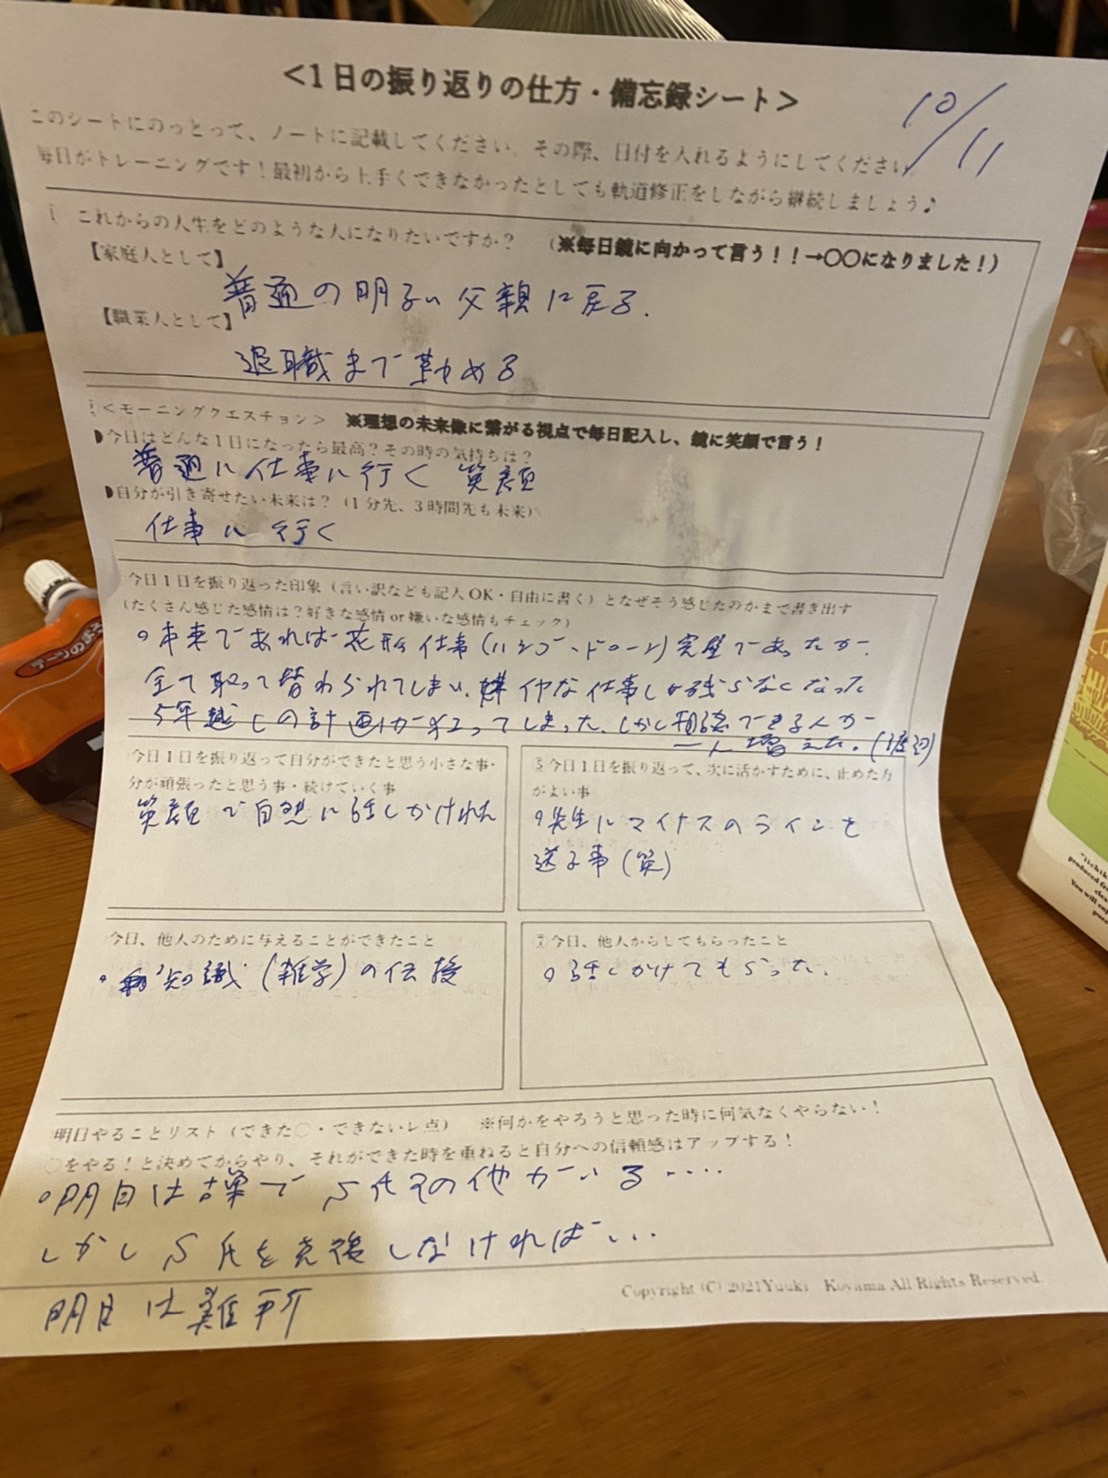 <1日の振り返りの仕方・備忘録シート>
10/11
このシートにのっとって、ノートに記載してください。その際、日付を入れるようにしてください
毎日がトレーニングです！最初から上手くできなかったとしても軌道修正をしながら継続しましょう♪
1 これからの人生をどのような人になりたいですか？ (※毎日鏡に向かって言う！！→〇〇になりました！)
【家庭人として】
普通の明るい父親に戻る.
【職業人として】
退職まで勤める
<モーニングクエスチョン> ※理想の未来像に繋がる視点で毎日記入し、鏡に笑顔で言う！
◗今日はどんな1日になったら最高？その時の気持ちは？
普通に仕事に行く 笑顔
◗自分が引き寄せたい未来は？（1分先、3時間先も未来）
仕事に行く
今日1日を振り返った印象（言い訳なども記入OK・自由に書く）となぜそう感じたのかまで書き出す
（たくさん感じた感情は？好きな感情or嫌いな感情もチェック）
本来であれば花形仕事(ハンゴードローン)完璧であったが.
全て取って替わられてしまい、嫌な仕事しか残らなくなった
5年越しの計画が狂ってしまった、しかし相談できる人が
一人増えた。(渡辺)
今日1日を振り返って自分ができたと思う小さな事・
分が頑張ったと思う事・続けていく事
笑顔で自然に話しかけれた
⑤今日1日を振り返って、次に活かすために、止めた方
がよい事
先生にマイナスのラインを
送る事(笑)
今日、他人のために与えることができたこと
知識(雑学)の伝授
今日、他人からしてもらったこと
話しかけてもらった.
明日やることリスト（できた〇・できないレ点） ※何かをやろうと思った時に何気なくやらない！
〇をやる！と決めてからやり、それができた時を重ねると自分への信頼感はアップする！
明日は S氏その他がいる.....
しかしS氏を克復しなければ...
明日は難所
Copyright (C) 2021Yuuki Koyama All Rights Reserved.